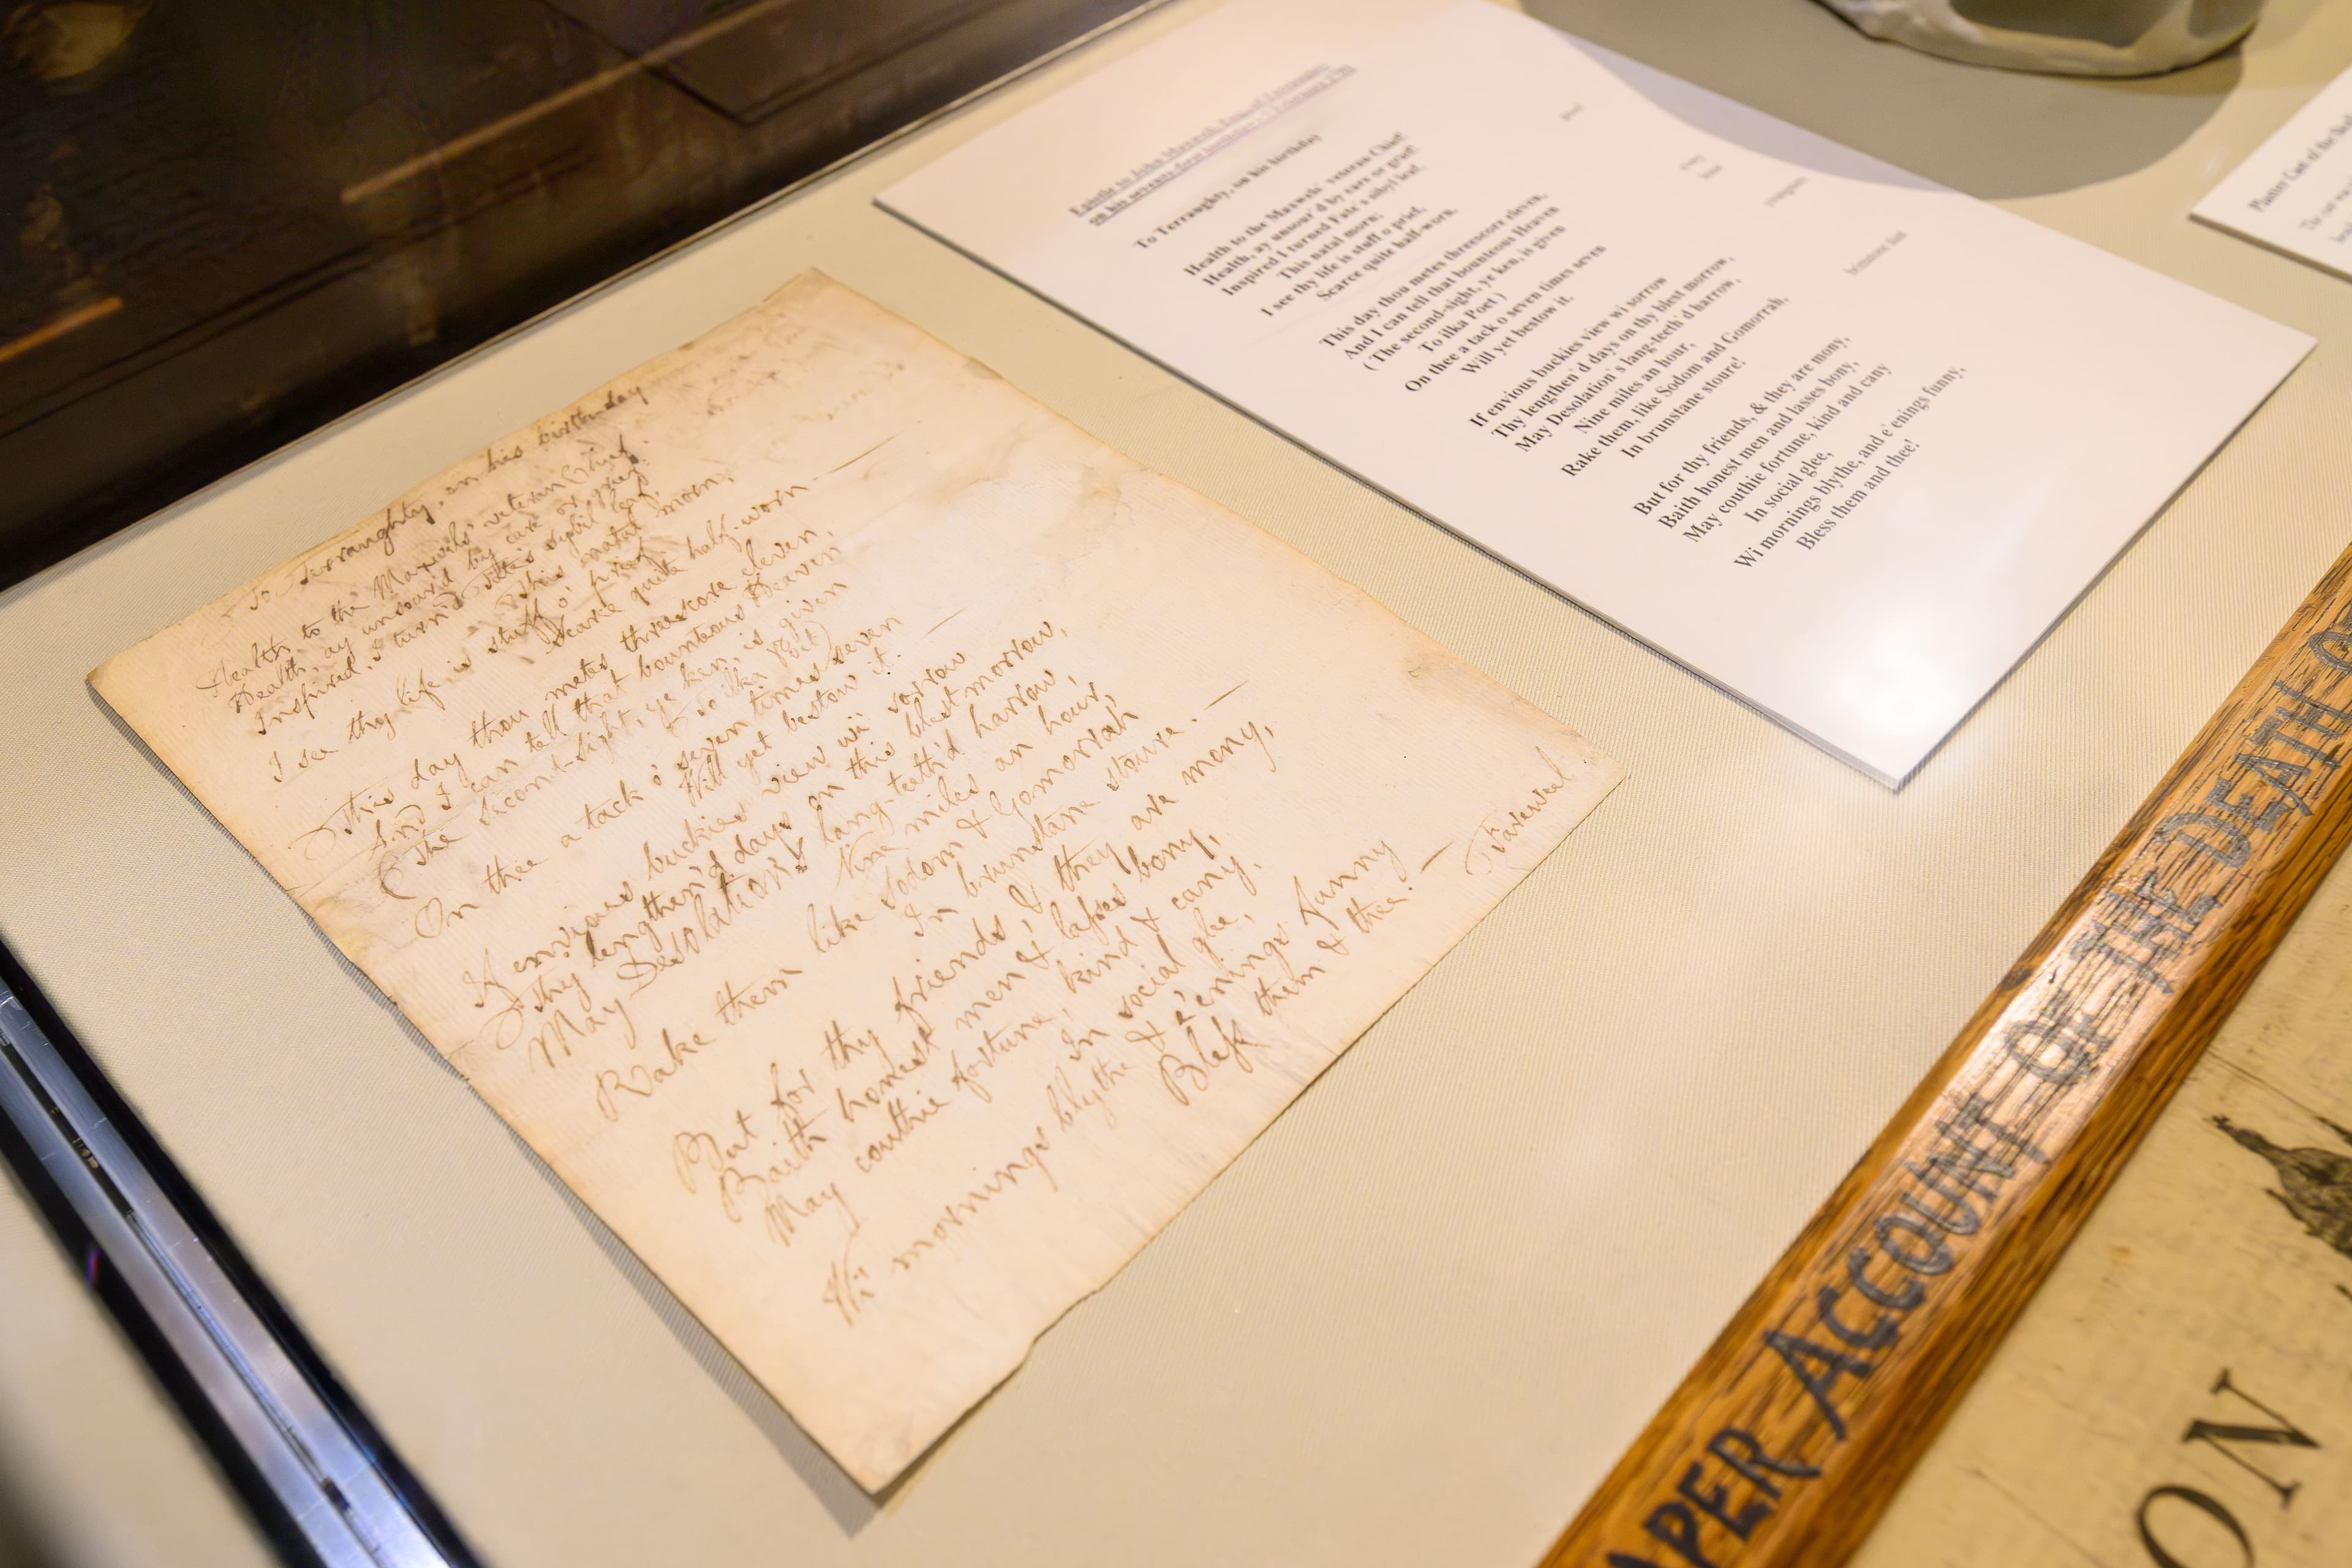 To Terraughty, on his birth-day
Health to the Maxwels' veteran Chief!
Health, ay unsour'd by care or grief.
Inspired, I turn'd Fate's sybil leaf,
This natal morn,
I see thy life is stuff o' prief,
Scarce quite half-worn. —
This day thou metes threescore eleven,
And I can tell that bounteous Heaven
(The second-sight, ye ken, is given
To ilka Poet)
On thee a tack o' seven times seven
Will yet bestow it.
If envious buckies view wi' sorrow
Thy lengthen'd days on this blest morrow,
May Desolation's lang-teeth'd harrow,
Nine miles an hour,
Rake them like Sodom & Gomorrah
In brunstane stoure. —
But for thy friends, & they are mony,
Baith honest men & lasses bony,
May couthie fortune, kind & cany,
In social glee,
Wi' mornings blythe & e'enings funny
Bless them & thee. —
Farewel
Epistle to John Maxwell,
on his seventy-first birthday
To Terraughty, on his birthday
Health to the Maxwels' veteran Chief!
Health, ay unsour'd by care or grief!
Inspired I turned Fate's sibyl leaf,
This natal morn;
I see thy life is stuff o prief,
Scarce quite half-worn.
This day thou metes threescore eleven,
And I can tell that bounteous Heaven
(The second-sight, ye ken, is given
To ilka Poet)
On thee a tack o seven times seven
Will yet bestow it.
If envious buckies view wi sorrow
Thy lengthen'd days on thy blest morrow,
May Desolation's lang-teeth'd harrow,
Nine miles an hour,
Rake them, like Sodom and Gomorrah,
In brunstane stoure!
But for thy friends, & they are mony,
Baith honest men and lasses bony,
May couthie fortune, kind and cany
In social glee,
Wi mornings blythe, and e'enings funny,
Bless them and thee!
proof
every
lease
youngsters
brimstone dust
Plaster Cast of the
APER ACCOUNT OF THE DEATH O
ON